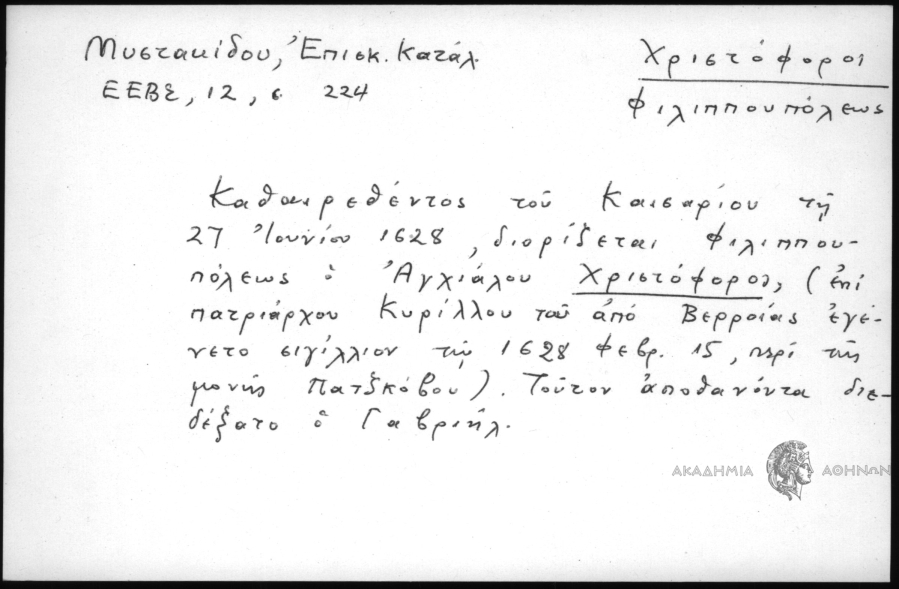 Μυστακίδου, Ἐπισκ. Κατάλ.
ΕΕΒΣ, 12, σ 224
Χριστόφορος
Φιλιππουπόλεως
Καθαιρεθέντος τοῦ Καισαρίου τῇ
27 Ἰουνίου 1628, διορίζεται Φιλιππου-
πόλεως ὁ Ἀγχιάλου Χριστόφορος, (ἐπί
πατριάρχου Κυρίλλου τοῦ ἀπό Βερροίας ἐγέ-
νετο σιγίλλιον τῇ 1628 Φεβρ. 15, περί τῆς
μονῆς Πατζκόβου). Τοῦτον ἀποθανόντα διε-
δέξατο ὁ Γαβριήλ.
ΑΚΑΔΗΜΙΑ ΑΘΗΝΩΝ